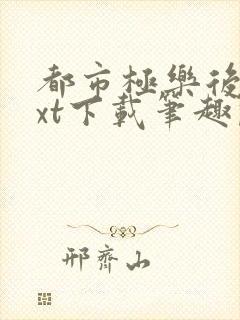 都市極樂後
xt下載筆趣
邢齊山